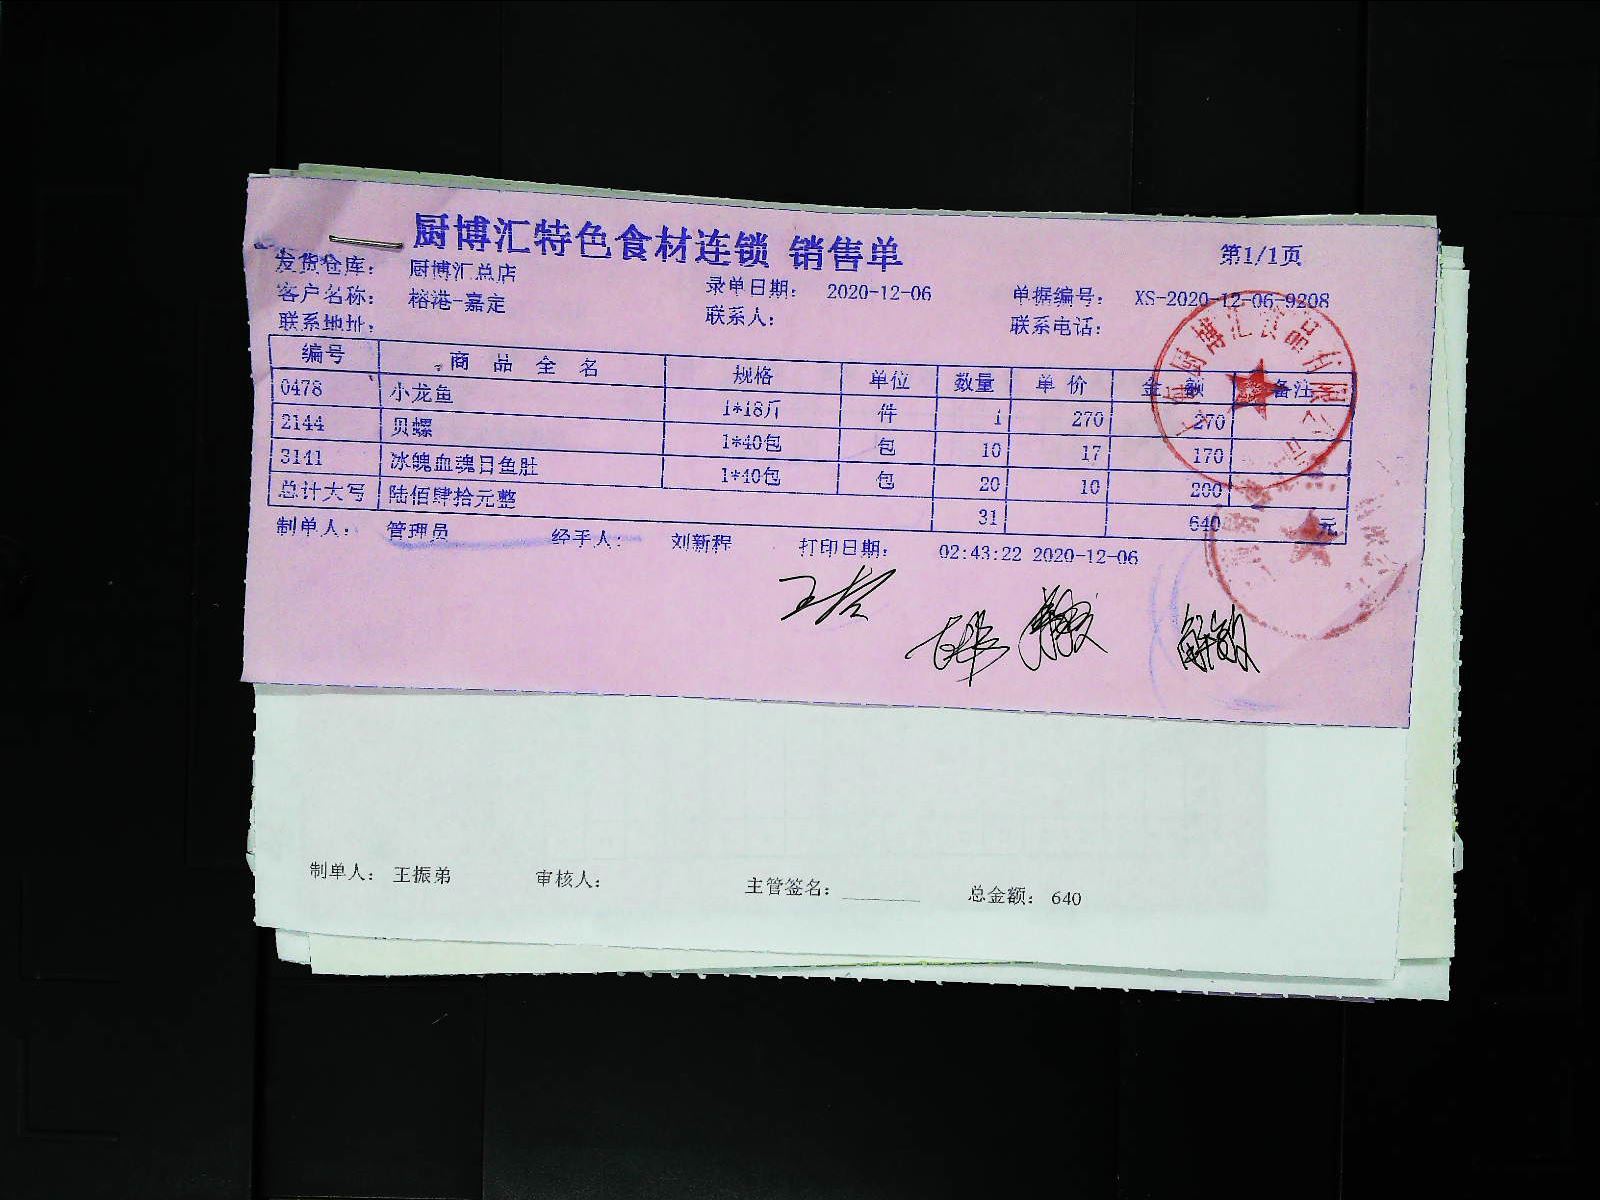 厨博汇特色食材连锁 销售单
第1/1页
发货仓库： 厨博汇总店
客户名称： 榕港-嘉定 录单日期： 2020-12-06 单据编号： XS-2020-12-06-9208
联系地址： 联系人： 联系电话：
编号 商品全名 规格 单位 数量 单价 金额 备注
0478 小龙鱼 1*18斤 件 1 270 270
2144 贝螺 1*40包 包 10 17 170
3141 冰魄血魂目鱼肚 1*40包 包 20 10 200
总计大写 陆佰肆拾元整 31 640 元
制单人： 管理员 经手人： 刘新程 打印日期： 02:43:22 2020-12-06
制单人： 王振弟 审核人： 主管签名： 总金额： 640